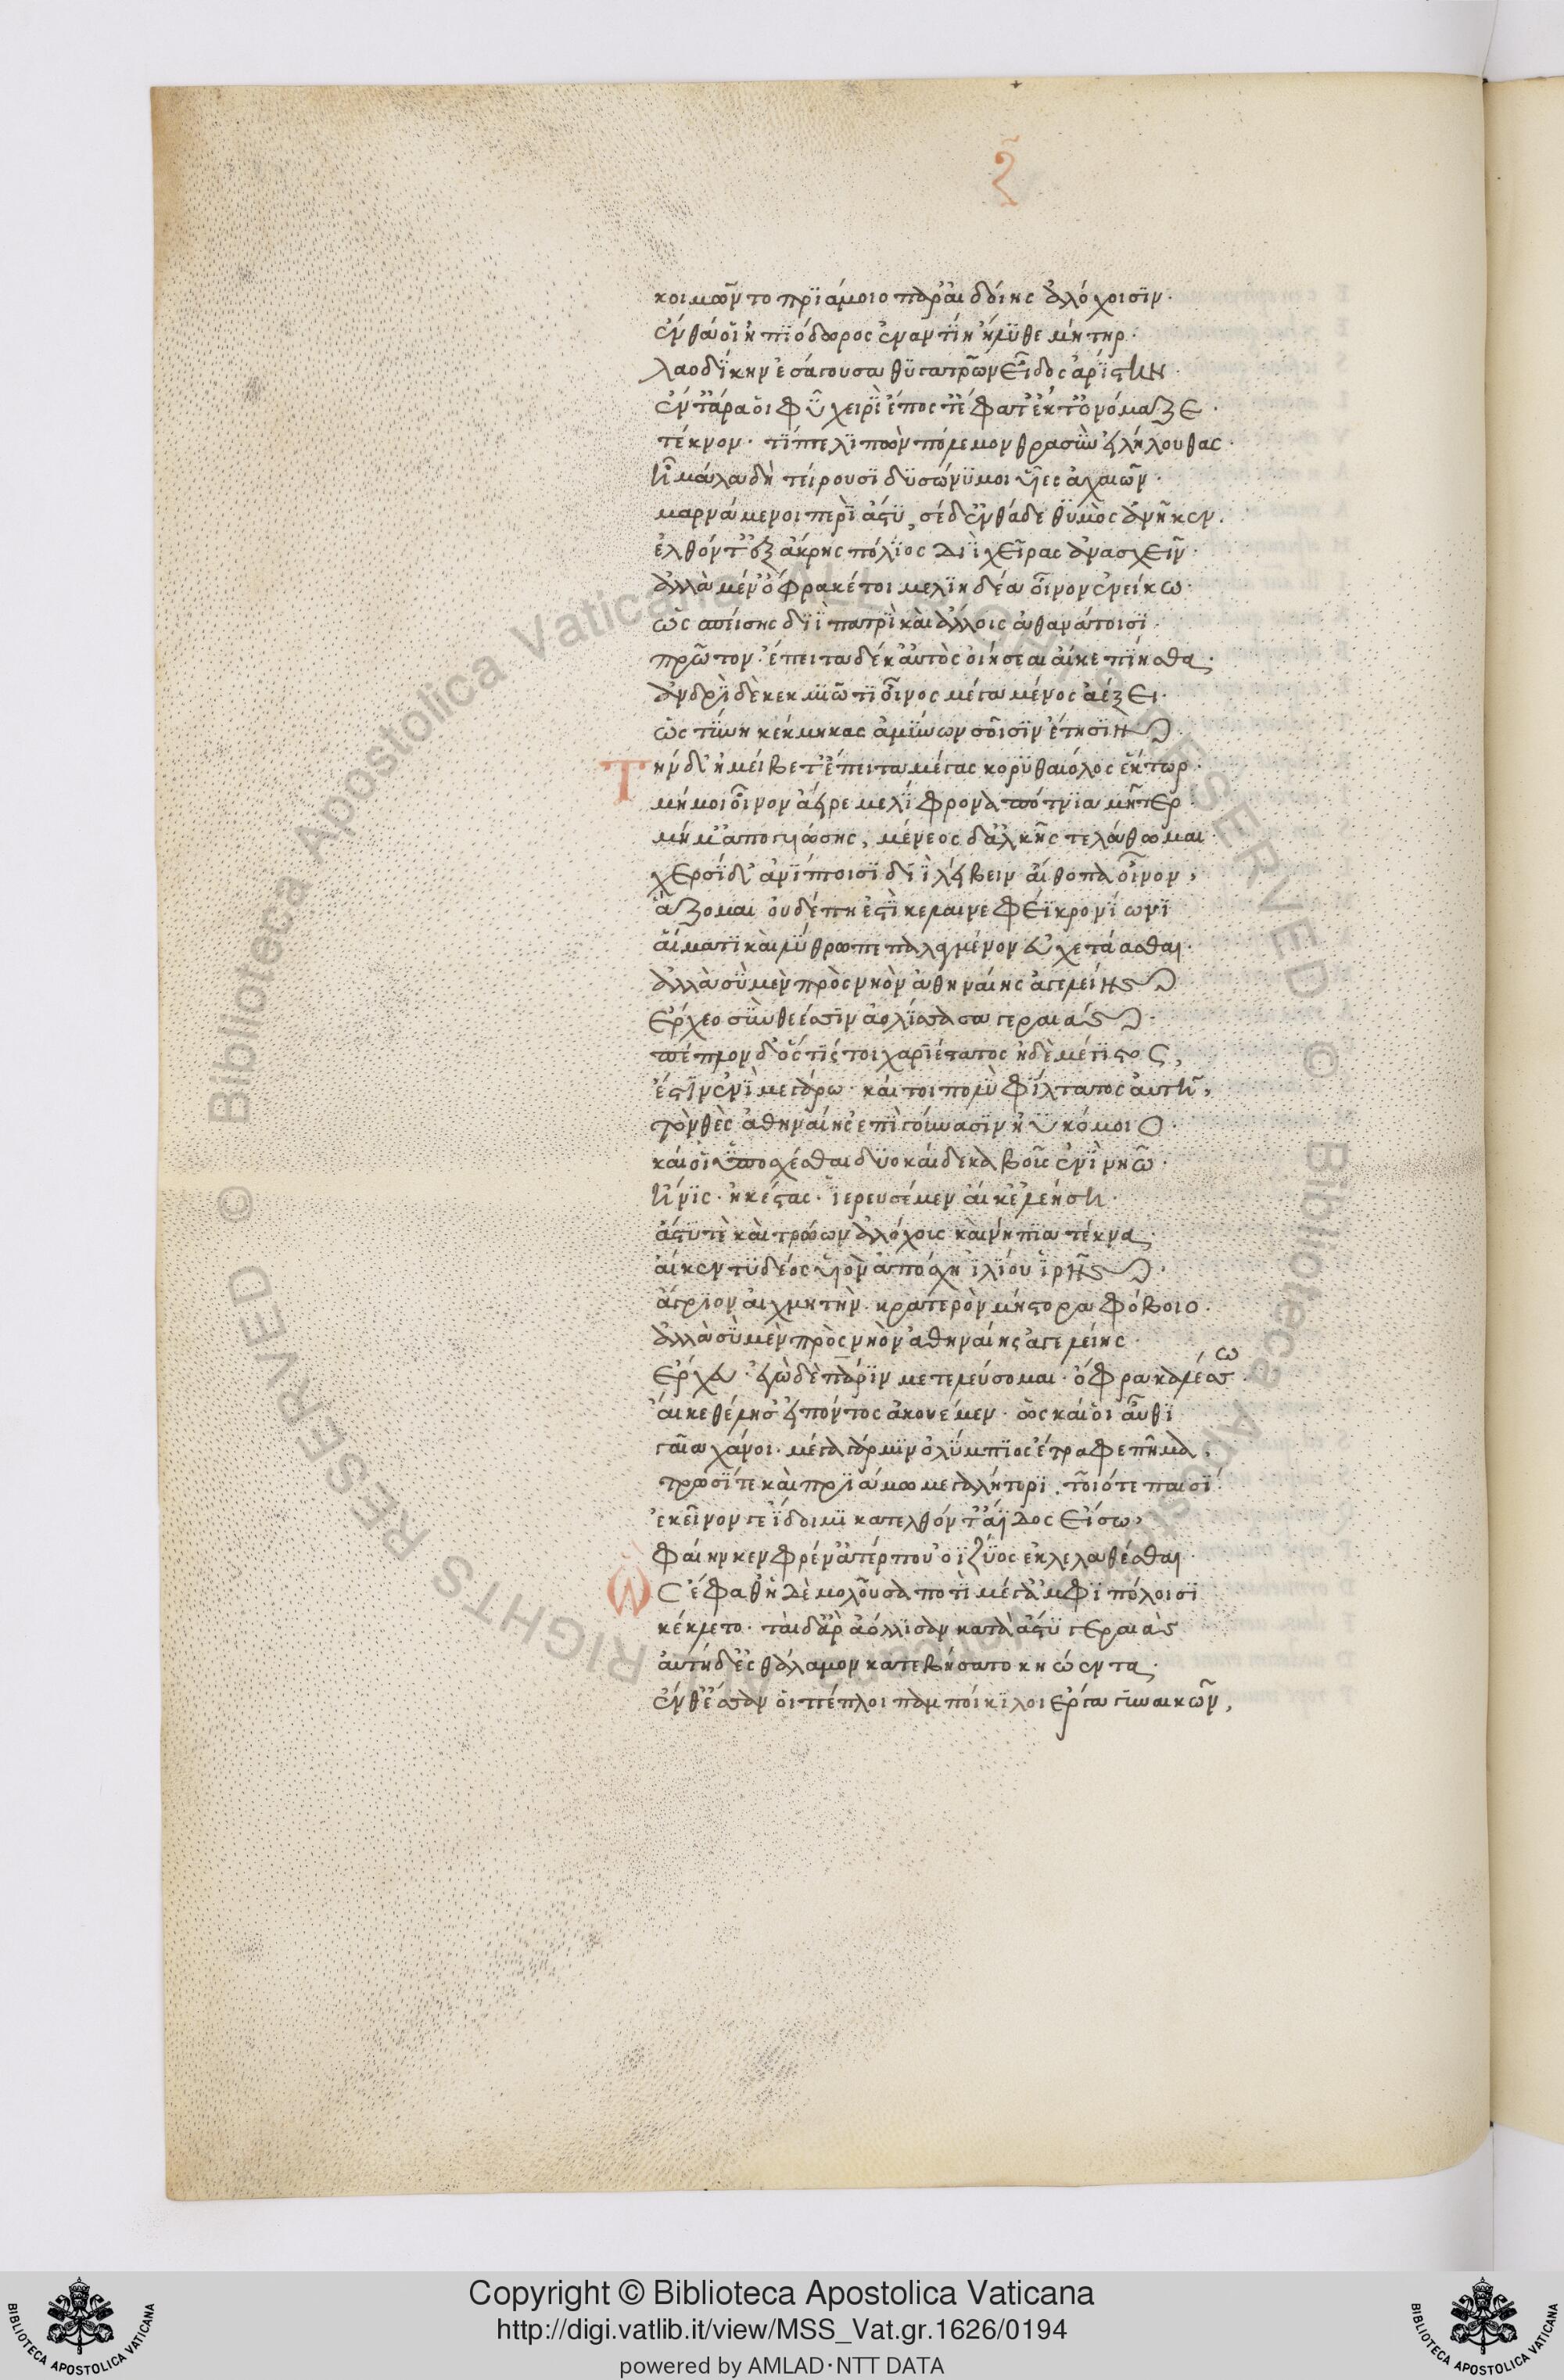 ζ̃
κοιμῶντο πρϊάμοιο παρ' αἰδοίης ἀλόχοισϊν·
ἔνθά οἱ ἠπϊόδωρος ἐναντίη ἤλϋθε μήτηρ·
λαοδίκην ἐσάγουσα θϋγατρῶν εἶδος ἀρίστην·
ἔν τ' ἄρά οἱ φῦ χειρὶ ἔπος τ' ἔφατ' ἔκ τ' ὀνόμαζε·
τέκνον· τίπτε λϊπὼν πόλεμον θρασὺν εἰλήλουθας·
ἦ μάλα δὴ τείρουσϊ δϋσώνϋμοι υἷες ἀχαιῶν·
μαρνάμενοι περὶ ἄστϋ, σὲ δ' ἐνθάδε θϋμὸς ἀνῆκεν·
ἐλθόντ' ἐξ ἄκρης πόλϊος Διὶ χεῖρας ἀνασχεῖν·
ἀλλὰ μέν' ὄφρα κέ τοι μελϊηδέα οἶνον ἐνείκω·
ὡς σπείσης διὶ πατρὶ καὶ ἄλλοις ἀθανάτοισϊ·
πρῶτον· ἔπειτα δέ κ' αὐτὸς ὀνήσεαι αἴ κε πίησθα·
ἀνδρὶ δὲ κεκμηῶτϊ οἶνος μέγα μένος ἀέξει·
ὡς τύνη κέκμηκας ἀμύνων σοῖσϊν ἔτησϊν·
Τὴν δ' ἠμείβετ' ἔπειτα μέγας κορϋθαίολος ἕκτωρ·
μή μοι οἶνον ἄειρε μελίφρονα πότνϊα μῆτερ·
μή μ' ἀπογυιώσης, μένεος δ' ἀλκῆς τε λάθωμαι·
χερσὶ δ' ἀνίπτοισϊ διὶ λείβειν αἴθοπα οἶνον,
ἅζομαι οὐδέ πη ἐστὶ κελαινεφέϊ κρονίωνϊ
αἵματϊ καὶ λύθρω πεπαλαγμένον εὐχετάασθαι·
ἀλλὰ σὺ μὲν πρὸς νηὸν ἀθηναίης ἀγελείης
ἔρχεο σὺν θϋέεσσϊν ἀολλίσσασα γεραιάς·
πέπλον δ' ὅς τίς τοι χαρϊέστατος ἠδὲ μέγϊστος,
ἔστϊν ἐνὶ μεγάρω· καί τοι πολὺ φίλτατος αὐτῆ,
τὸν θὲς ἀθηναίης ἐπὶ γούνασϊν ἠϋκόμοιο·
καί οἱ ὑποσχέσθαι δϋοκαίδεκα βοῦς ἐνὶ νηῶ·
ἤνϊς· ἠκέστας· ἱερευσέμεν αἴ κ' ἐλεήση·
ἄστϋ τὲ καὶ τρώων ἀλόχους καὶ νήπϊα τέκνα·
αἴ κεν τϋδέος υἱὸν ἀπόσχη ἰλίου ἱρῆς·
ἄγρϊον αἰχμητὴν· κρατερὸν μήστορα φόβοιο·
ἀλλὰ σὺ μὲν πρὸς νηὸν ἀθηναίης ἀγελείης·
ἔρχευ· ἐγὼ δὲ πάρϊν μετελεύσομαι· ὄφρα καλέσσω·
αἴ κε θέλησ' εἰπόντος ἀκουέμεν· ὥς καί οἱ αὖθϊ
γαῖα χάνοι· μέγα γάρ μϊν ὀλύμπϊος ἔτραφε πῆμα,
τρωσί τε καὶ πρϊάμω μεγαλήτορϊ, τοῖό τε παισί·
ἐκεῖνον γε ἴδοιμϊ κατελθόντ' ἄϊδος εἴσω,
φαίην κεν φρέν' ἀτέρπου ὀϊζύος ἐκλελαθέσθαι·
Ὣς ἔφαθ' ἣ δὲ μολοῦσα ποτὶ μέγαρ' ἀμφϊπόλοισϊ
κέκλετο· ταὶ δ' ἄρ' ἀόλλϊσαν κατὰ ἄστϋ γεραιάς
αὐτὴ δ' ἐς θάλαμον κατεβήσατο κηώεντα·
ἔνθ' ἔσαν οἱ πέπλοι παμποίκϊλοι ἔργα γυναικῶν,
Copyright © Biblioteca Apostolica Vaticana
http://digi.vatlib.it/view/MSS_Vat.gr.1626/0194
powered by AMLAD·NTT DATA